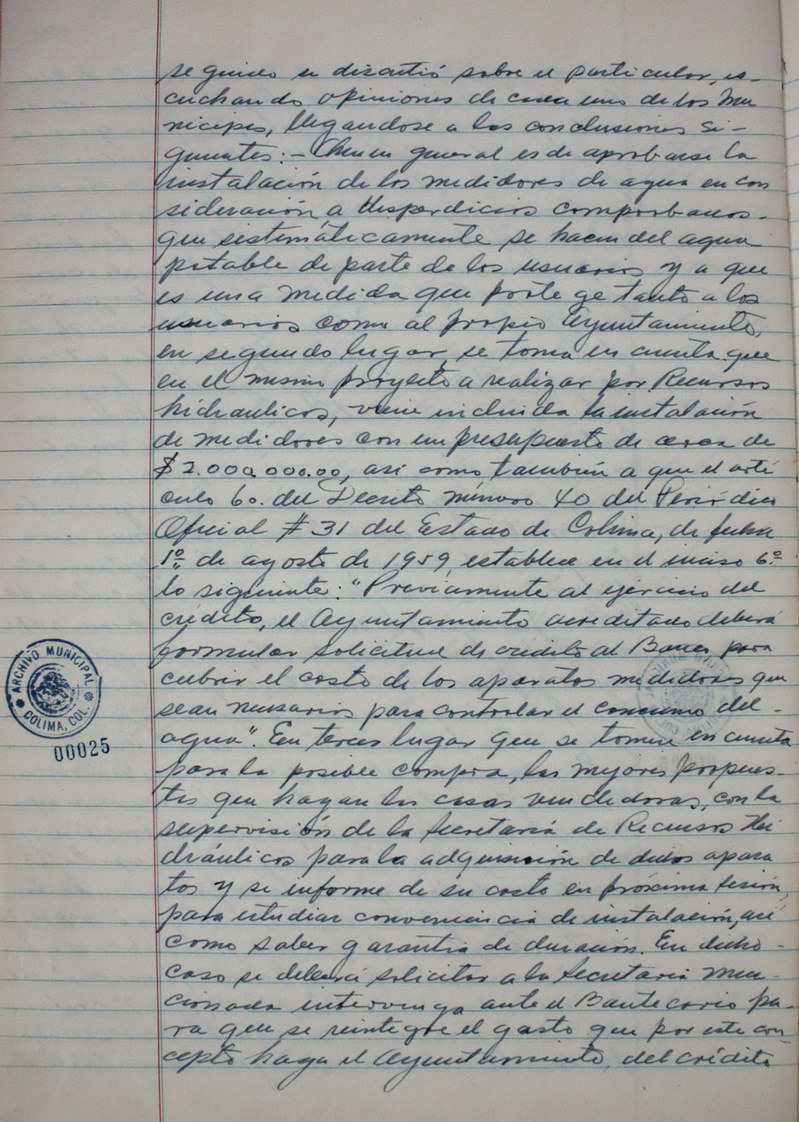 seguido se discutió sobre el particular, es-
cuchando opiniones de cada uno de los Mu
nícipes, llegandose a las conclusiones si-
guientes:- en general es de aprobarse la
instalación de los medidores de agua en con
sideración a desperdicios comprobados-
que sistemáticamente se hacen del agua
potable de parte de los usuarios y a que
es una medida que protege tanto a los
usuarios como al propio Ayuntamiento,
en segundo lugar, se toma en cuenta que
en el mismo proyecto a realizar por Recursos
hidraulicos, viene incluida la instalación
de medidores con un presupuesto de cerca de
$2.000,000.00, asi como también a que el artí
culo 6o. del Decreto número 40 del Periódico
Oficial #31 del Estado de Colima, de fecha
1º de agosto de 1959, establece en el inciso 6º
lo siguiente: "Previamente al ejercicio del
crédito, el Ayuntamiento acreditado deberá
formular solicitud de crédito al Banco para
cubrir el costo de los aparatos medidores que
sean necesarios para controlar el consumo del-
agua". En tercer lugar que se tome en cuenta
para la posible compra, las mejores propues-
tas que hagan las casas vendedoras, con la
supervisión de la Secretaría de Recursos Hi
dráulicos para la adquisición de dichos apara
tos y se informe de su costo en próxima sesión,
para estudiar conveniencia de instalación, así
como saber garantia de duración. En dicho-
caso se deberá solicitar a la Secretaria men-
cionada intervenga ante el Banco pa-
ra que se reintegre el gasto que por este con-
cepto haga el Ayuntamiento, del crédito
ARCHIVO MUNICIPAL
COLIMA, COL.
00025